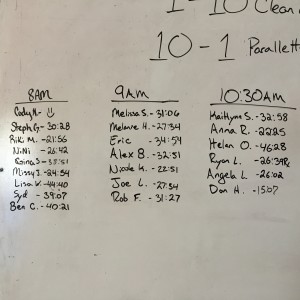 1-10 Clean
10-1 Parallett
8AM
Cody H-
Steph G- 30:28
Riki M. -21:56
NiNi - 26:42
Raina S- 38:51
Missy I -24:54
Lisa -44:40
Syd - 39:07
Ben C. - 40:21
9AM
Melissa S.- 31:06
Melanie H. -27:34
Eric - 34:59
Alex B. - 32:51
Nicole K. - 22:51
Joe L. - 27:54
Rob F. - 31:27
10:30AM
Kaithynn S.- 32:58
Anna R. -22:25
Helen O. -46:28
Ryan L. -26:39
Angela L -26:02
Dan H. -15:07